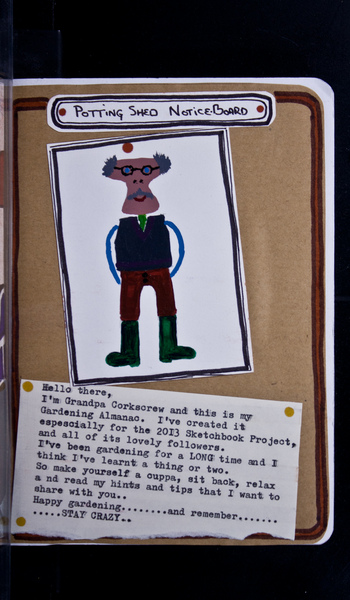 POTTING SHED NOTICE-BOARD
Hello there,
I'm Grandpa Corkscrew and this is my
Gardening Almanac.  I've created it
espescially for the 2013 Sketchbook Project,
and all of its lovely followers.
I've been gardening for a LONG time and I
think I've learnt a thing or two.
So make yourself a cuppa, sit back, relax
a nd read my hints and tips that I want to
share with you..
Happy gardening........and remember.......
.....STAY CRAZY..